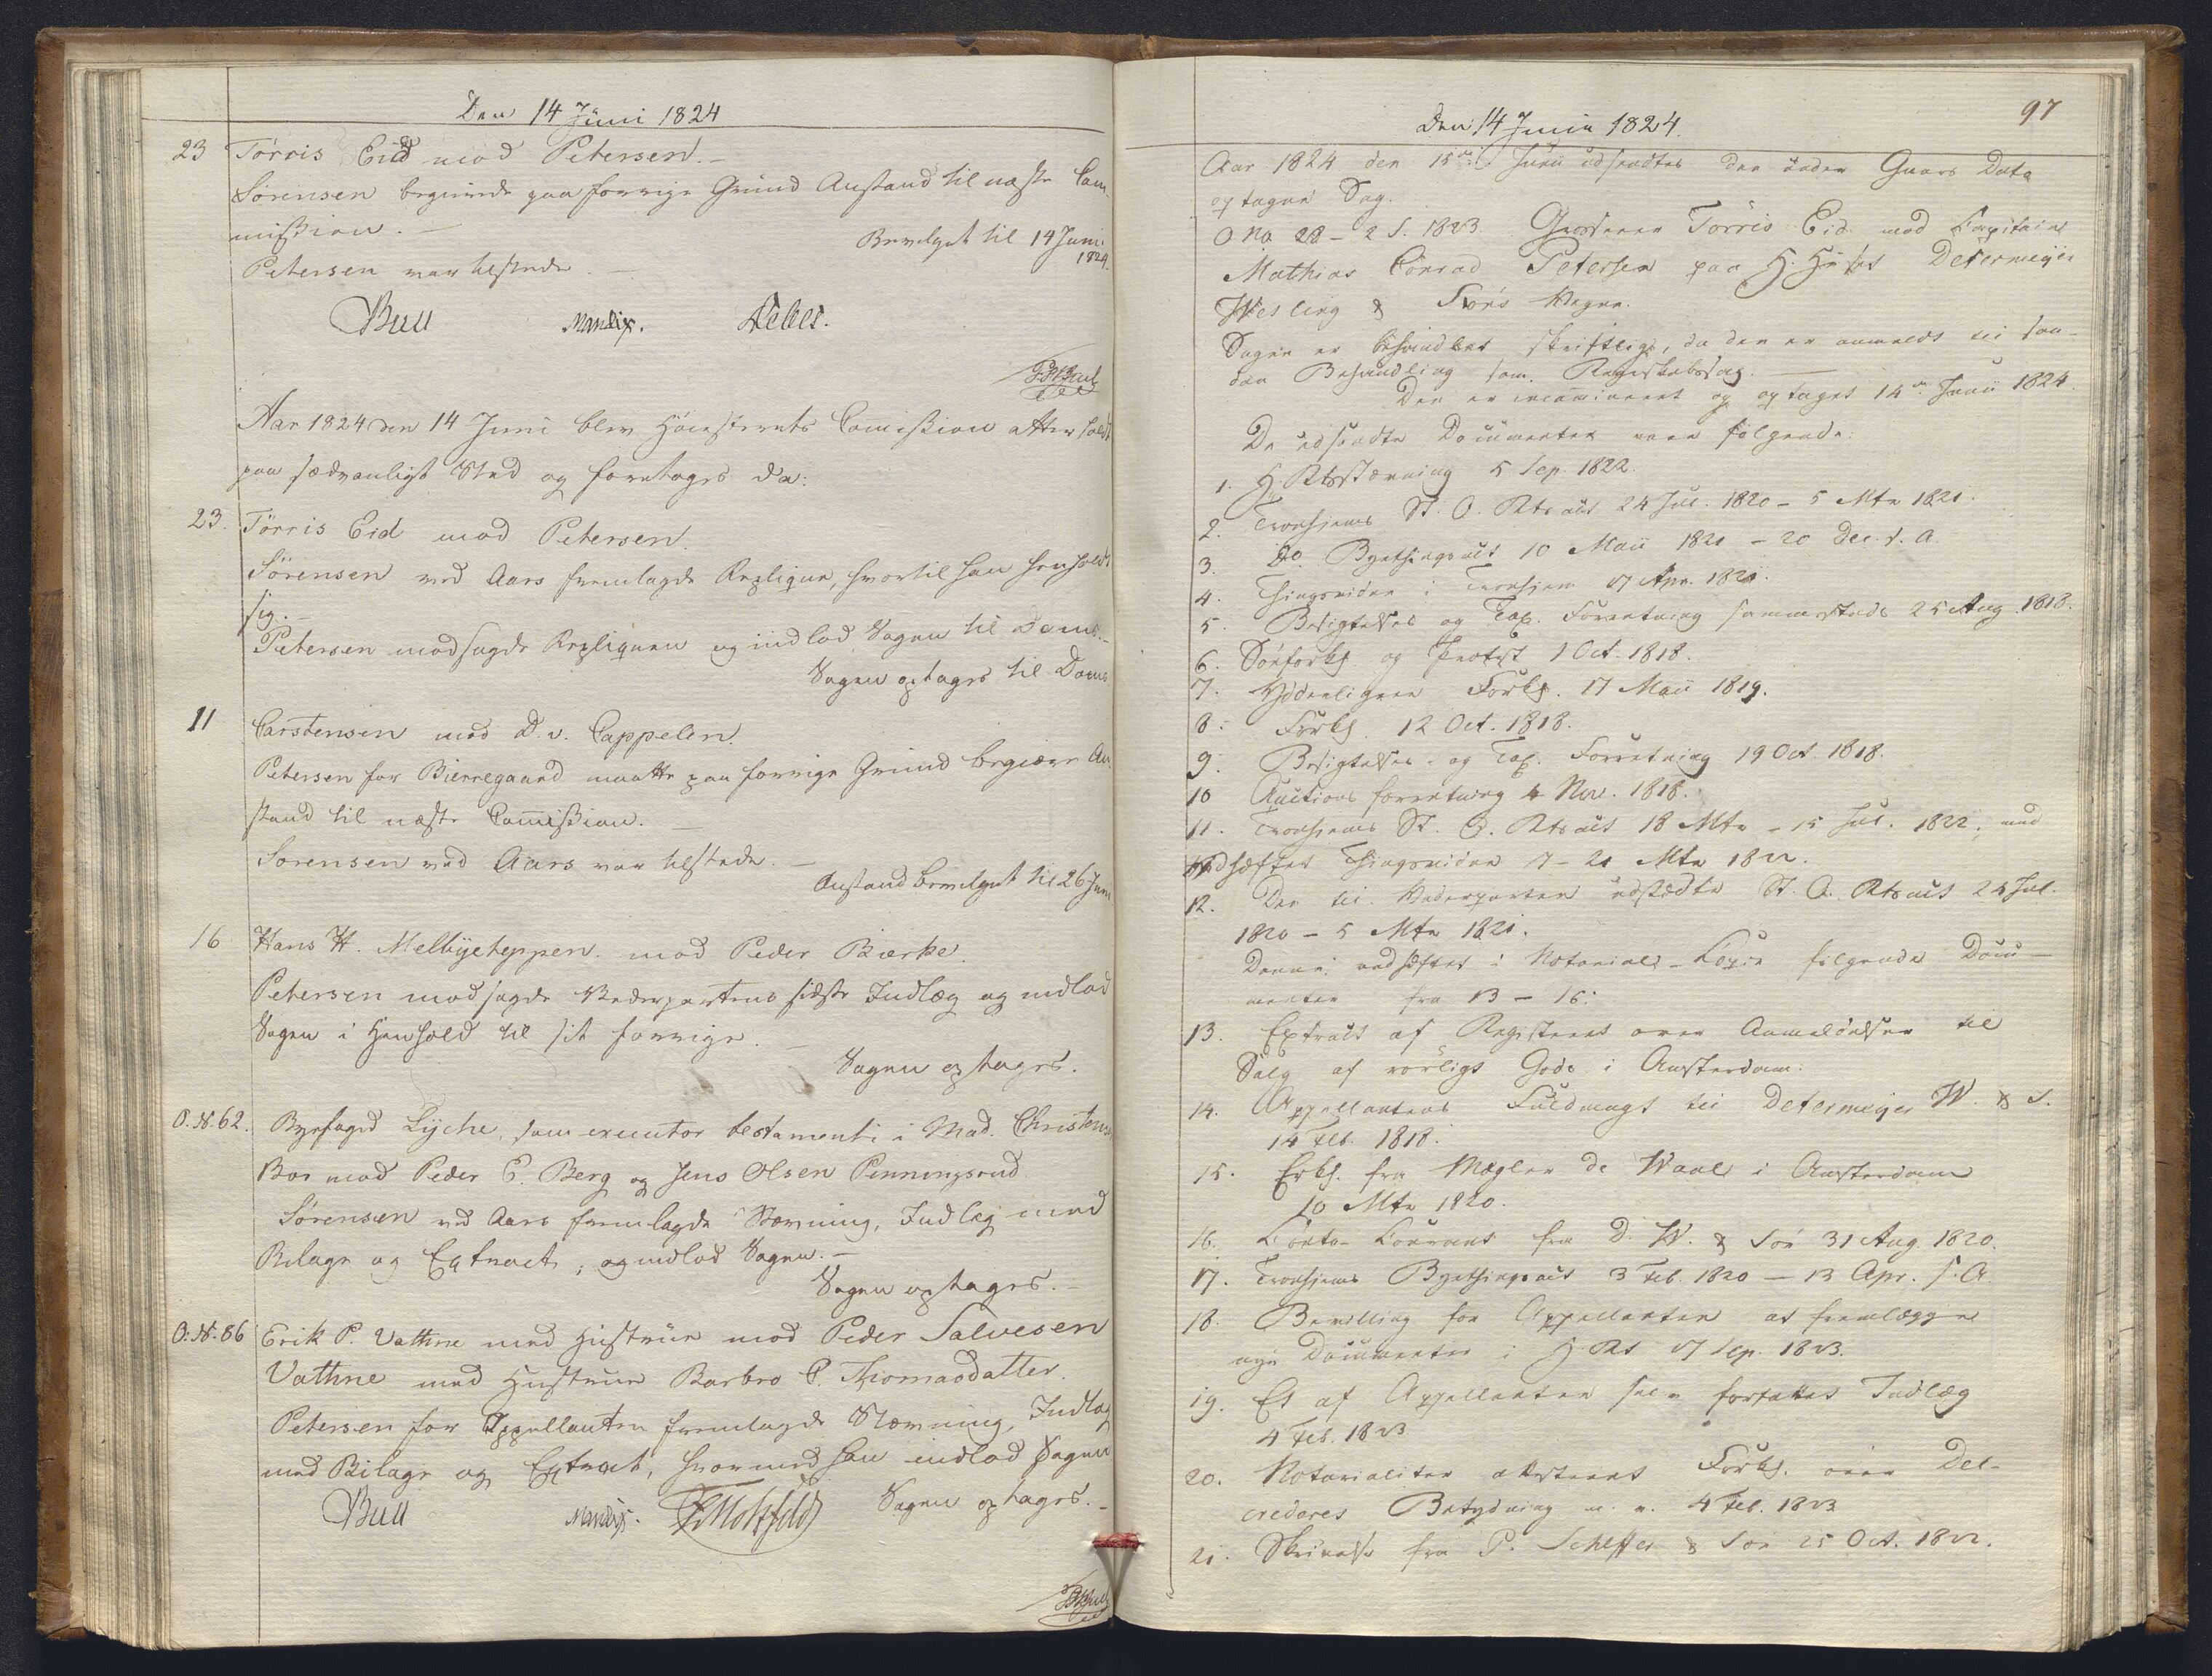 Den 14 Juni 1824
23 Törris Eid mod Petersen.-
Sörensen begierede paa forrige Grund Anstand til næste Com-
mission.-
Bevilget til 14 Juni
1824.
Petersen var tilstede.-
Bull Mandix. Debes.
Aar 1824 den 14 Juni blev Höiesterets Commission atter holdt
paa sædvanligt Sted og foretoges da:
23. Törris Eid mod Petersen.
Sörensen ved Aars fremlagde Replique, hvortil han henholdt
sig.-
Petersen modsagde Repliquen og indlod Sagen til Doms.-
Sagen optages til Doms.
11 Carstensen mod D. v. Cappelen.
Petersen for Bierregaard maatte paa forrige Grund begiære An-
stand til næste Commission.-
Sörensen ved Aars var tilstede.-
Anstand bevilget til 26 Juni
16 Hans H. Melbyeteppen. mod Peder Bierke.
Petersen modsagde Vederpartens sidste Indlæg og indlod
Sagen i Henhold til sit forrige.-
Sagen optages.
O.N.62. Byefoged Lyche, som executor testamenti i Mad. Christens
Boe mod Peder E. Berg og Jens Olsen Penningsrud.
Sörensen ved Aars fremlagde Stævning, Indlæg med
Bilage og Extract, og indlod Sagen.-
Sagen optages.-
O.N.86 Erik P. Vathne med Hustrue mod Peder Salvesen
Vathne med Hustrue Barbro P. Thomasdatter.
Petersen for Appellanten fremlagde Stævning, Indlæg
med Bilage og Extract, hvormed han indlod Sagen
Sagen optages.-
Bull Mandix. Motzfeldt
97
Den 14 Junii 1824.
Aar 1824 den 15de Junii udsendtes den under Gaars Dato
optagne Sag.
O No 23 - 2 S. 1823. Grosserer Törris Eid mod Capitaine
Mathias Conrad Petersen paa H. Huset Determeyer
Wesling & Sön's Vegne.
Sagen er behandlet skriftlig, da den er anmeldt til saa-
dan Behandling som Regnskabssag.-
Den er incamineret og optaget 14de Junii 1824.
De udsendte Documenter vare fölgende:
1. H. Rtsstævning 5 Sep. 1822.
2. Tronhjems St. O. Rts act 24 Jul. 1820 - 5 Mts 1821.
3. do. Byethingsact 10 Maii 1820 - 20 Dec. s. A.
4. Thingsvidne i Tronhjem 17 Apr. 1820.
5. Besigtelses og Tax. Forretning sammesteds 25 Aug. 1818.
6. Söeforkl. og Protest 1 Oct. 1818.
7. Yderligere Forkl. 17 Maii 1819.
8. Forkl. 12 Oct. 1818.
9. Besigtelses- og Tax. Forretning 19 Oct. 1818.
10 Auctions forretning 4 Nov. 1818.
11. Tronhjems St. O. Rts act 18 Mts - 15 Jul. 1822, med
vedhæftet Thingsvidne 7 - 21 Mts 1822.
12. Den til Vederparten udstædte St. O. Rts act 24 Jul.
1820 - 5 Mts 1821.
Denne vedhæftet i Notarial-Copie fölgende Docu-
menter fra 13 - 16:
13. Extract af Registeret over Anmeldelser til
Salg af rörligt Gods i Amsterdam.
14. Appellantens Fuldmagt til Determeyer W. & S.
14 Feb. 1818.
15. Erkl. fra Mægler de Waal i Amsterdam
10 Mts 1820.
16. Conto-Courant fra D. W. & Sön 31 Aug. 1820.
17. Tronhjems Byethingsact 3 Feb. 1820 - 13 Apr. s. A.
18. Bevilling for Appellanten at fremlægge
nye Documenter i H. Rt 17 Sep. 1823.
19. Et af Appellanten selv forfattet Indlæg
4 Feb. 1823
20. Notarialiter attesteret Forkl. over Del-
crederes Betydning m. v. 4 Feb. 1823
21. Skrivelse fra P. Scheffer & Sön 25 Oct. 1822.